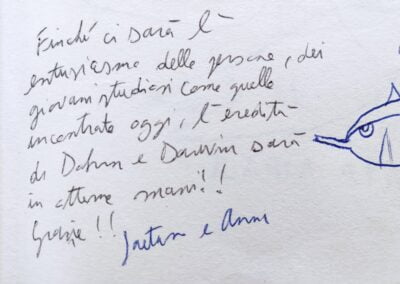 Finché ci sarà l'
entusiasmo delle persone, dei
giovani studiosi come quelle
incontrate oggi, l'eredità
di Dohrn e Darwin sarà
in ottime mani!!
Grazie!!
Gaetano e Anna